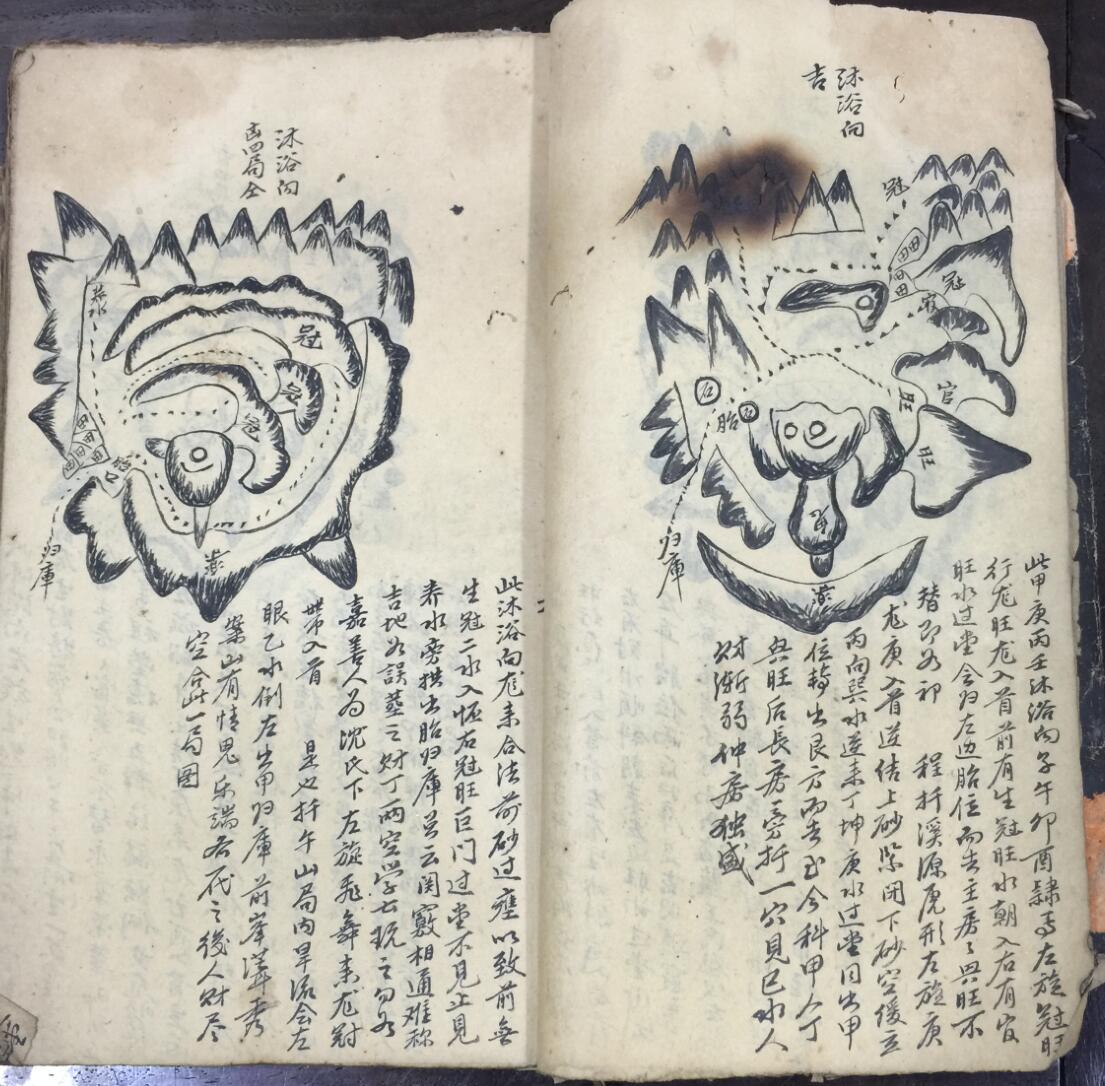 沐浴向
吉
冠
田田
田田
冠
官
旺
旺
石
胎
归庫
此甲庚丙壬沐浴向子午卯酉隸焉左旋冠旺
行龙旺龙入首前有生冠旺水朝入右有官
旺水过堂会归左边胎位而去主房々興旺不
替即如祁 程扦溪源虎形左旋庚
龙庚入首逆结上砂紧闭下砂空缓立
丙向巽水逆来丁坤庚水过堂同出甲
位转出艮方而去至今科甲人丁
興旺后長房旁扦一穴見巳水人
财渐弱仲房独盛
沐浴向
凶四局全
养水
冠
田
田田
田田
胎
归庫
此沐浴向龙来合法前砂过壅以致前無
生冠二水入怀右冠旺巨门过堂不見止見
养水旁拱出胎归庫曰云関竅相通难称
吉地如誤葬之财丁两空学士玩之勿忽
嘉善人為沈氏下左旋飛舞来龙冠
帶入首 是也扦午山局内旱流会左
眼乙水倒左出甲归庫前峯秀
案山有情
後人财尽
空合此一局圖